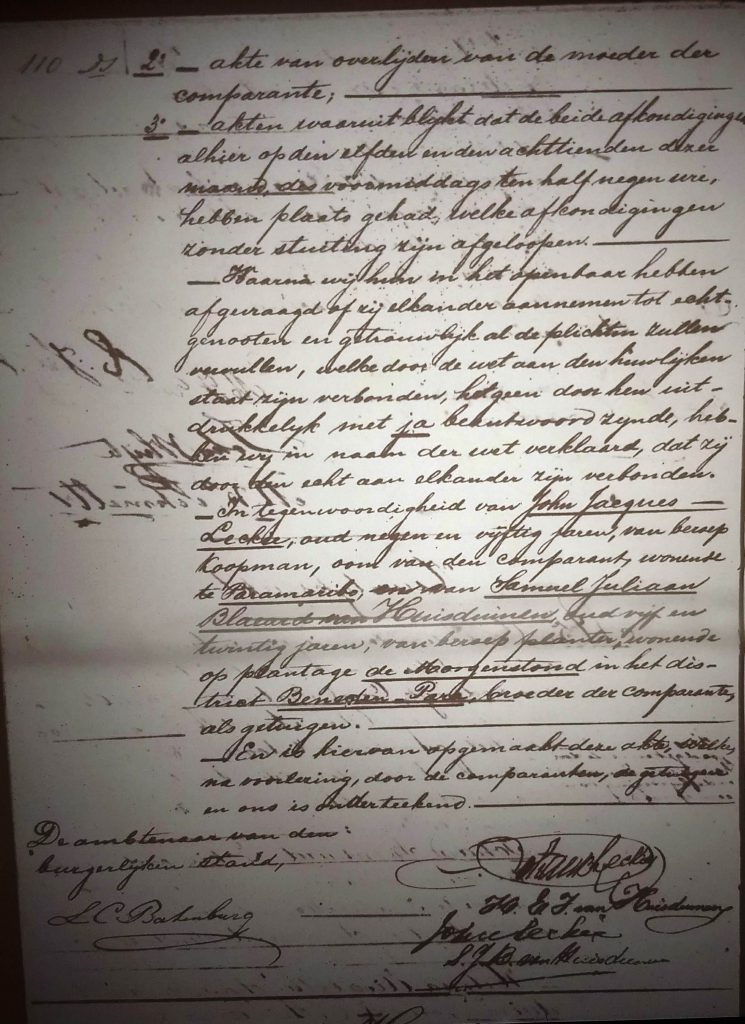 110
2° — akte van overlijden van de moeder der
comparante;
3° — akten waaruit blijkt dat de beide afkondigingen
alhier op den elfden en den achttienden dezer
maand, des voormiddags ten half negen ure,
hebben plaats gehad, welke afkondigingen
zonder stuiting zijn afgeloopen.
— Waarna wij hun in het openbaar hebben
afgevraagd of zij elkander aannemen tot echt-
genooten en getrouwlijk al de plichten zullen
vervullen, welke door de wet aan den huwlijken
staat zijn verbonden, hetgeen door hen uit-
drukkelyk met ja beantwoord zynde, heb-
ben wij in naam der wet verklaard, dat zij
door den echt aan elkander zijn verbonden.
— In tegenwoordigheid van John Jacques —
Leckie, oud negen en vijftig jaren, van beroep
koopman, oom van den comparant, wonende
te Paramaribo, en van Samuel Juliaan
Blacard van Huisduinen, oud vijf en
twintig jaren, van beroep planter, wonende
op plantage de Morgenstond in het dis-
trict Beneden-Para, broeder der comparante,
als getuigen.
— En is hiervan opgemaakt deze akte, welke,
na voorlezing, door de comparanten, de getuigen
en ons is onderteekend.
De ambtenaar van den
burgerlijken stand,
L C Batenburg
Leckie
H. E. J. van Huisduinen
John Leckie
S. J. B. van Huisduinen